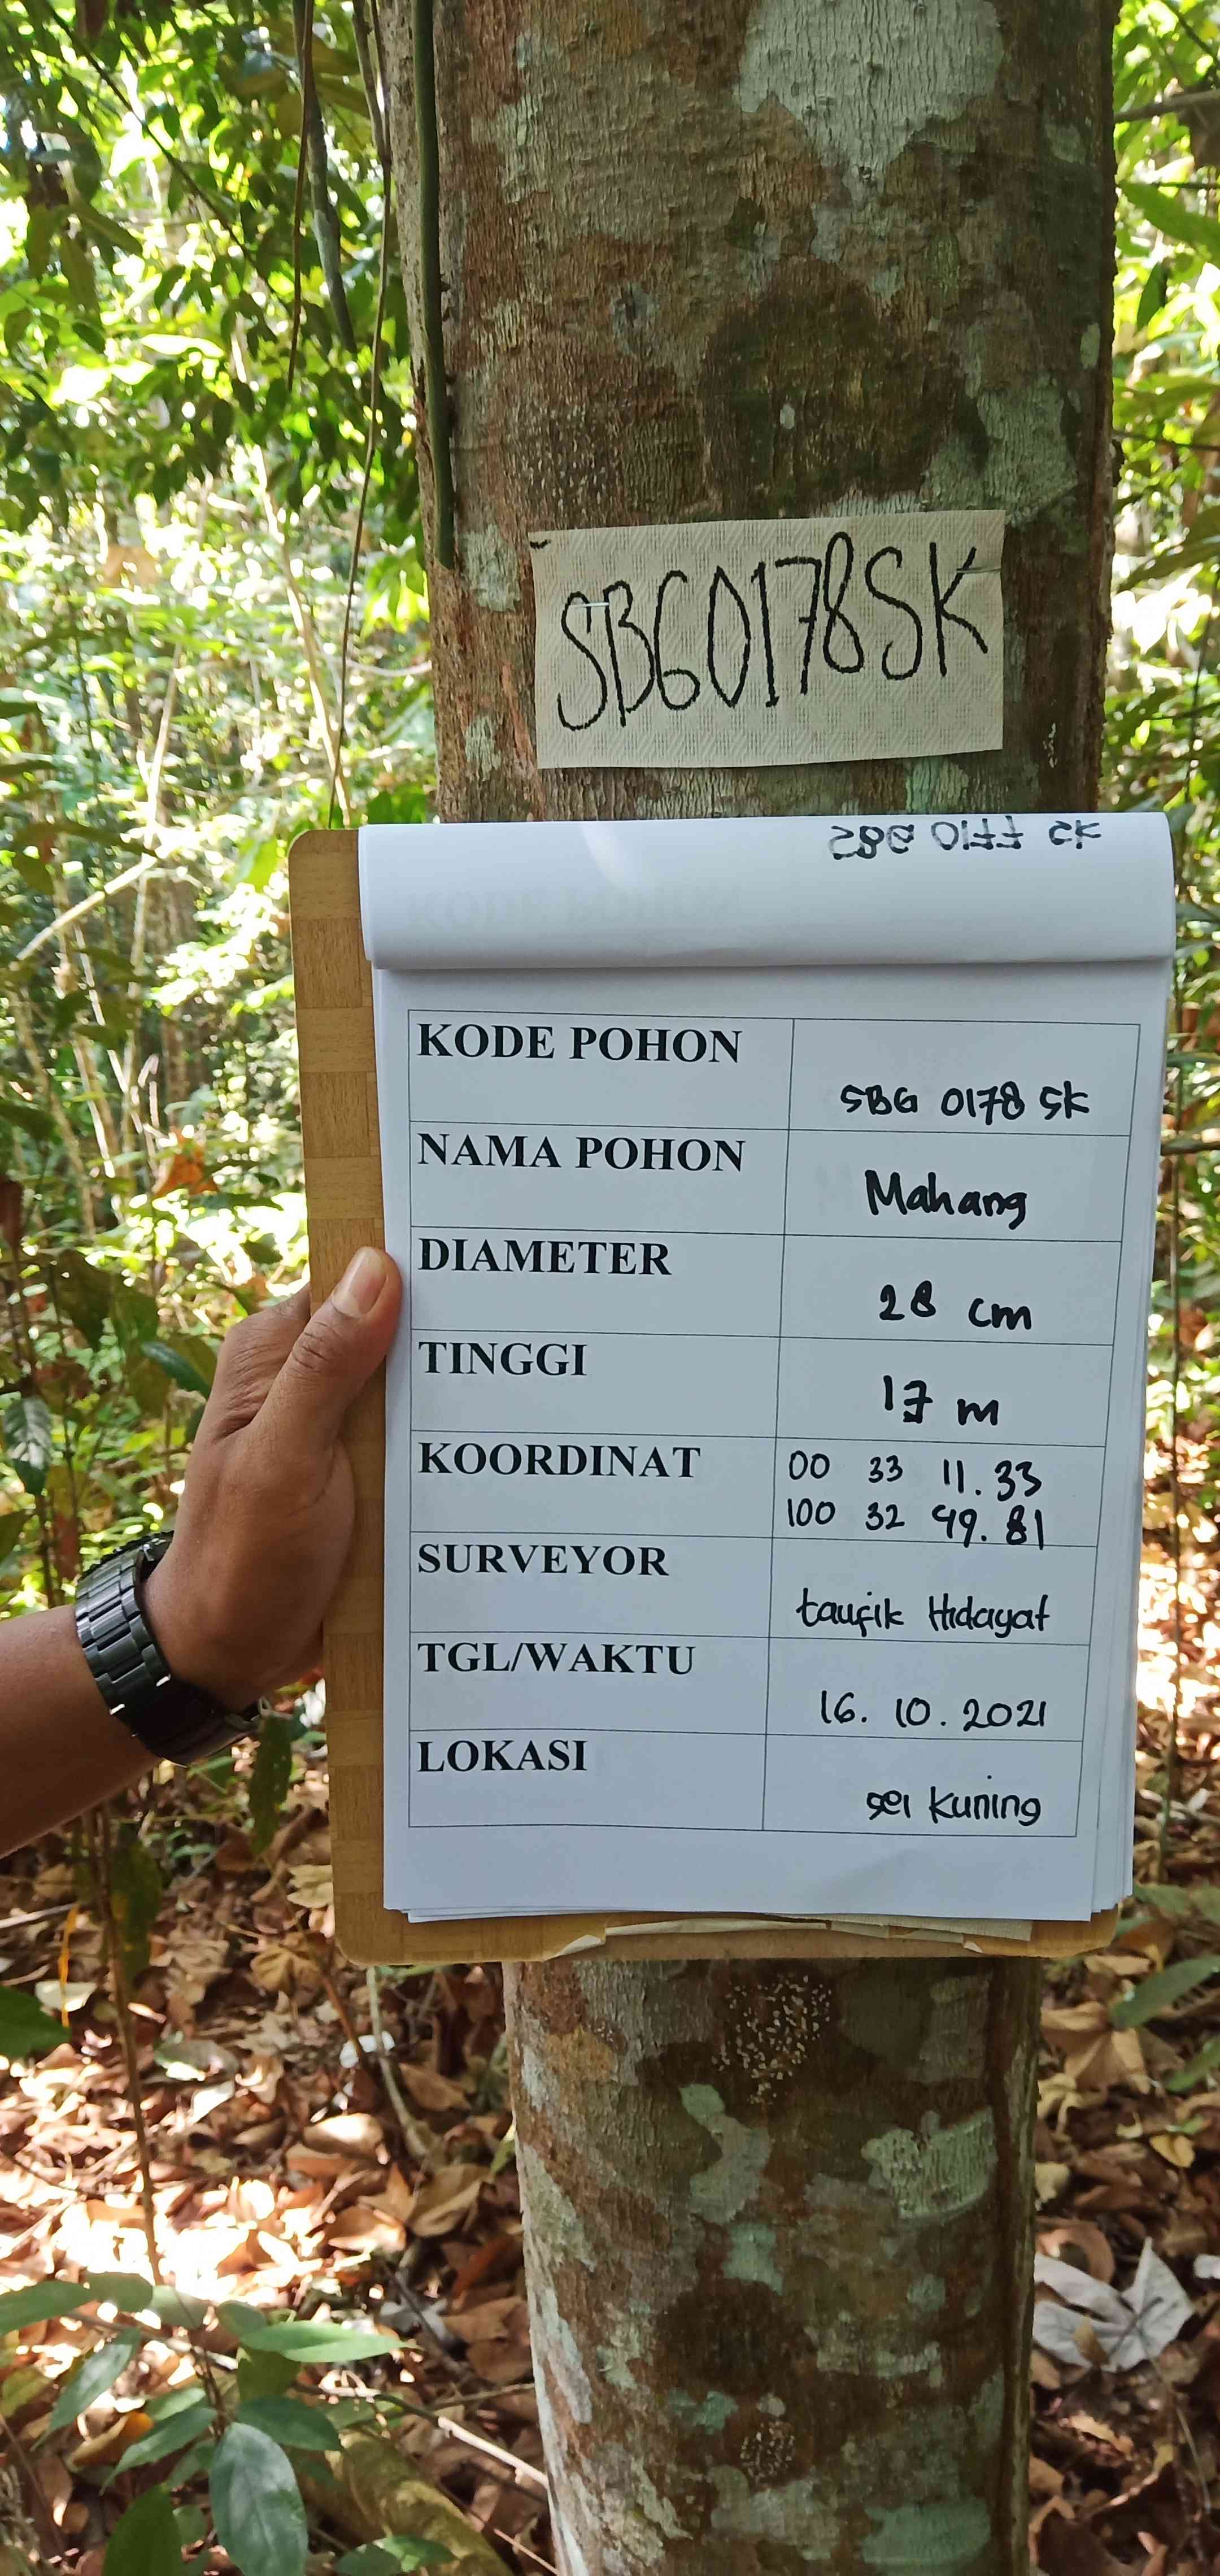 SBG0178SK
SBG 0177 SK
KODE POHON
SBG 0178 SK
NAMA POHON
Mahang
DIAMETER
28 cm
TINGGI
17 m
KOORDINAT
00 33 11.33
100 32 49.81
SURVEYOR
taufik Hidayat
TGL/WAKTU
16. 10. 2021
LOKASI
sei Kuning